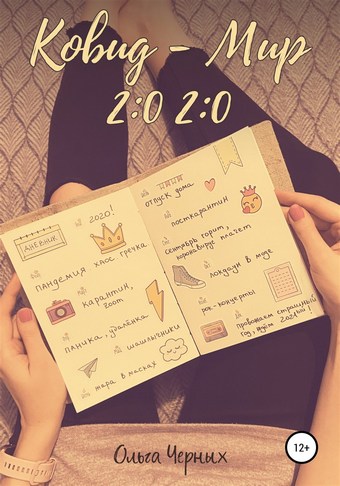 Ковид - Мир
2:0 2:0
2020!
ДНЕВНИК
пандемия хаос гречка
карантин,
zoom
паника, удалёнка
шашлычники
тара в масках
отпуск дома
посткарантин
сентябрь горит,
коронавирус плачет
локдаун в моде
рок-концерты
провожаем страшный
год, ждём 2021ый!
Ольга Черных
12+